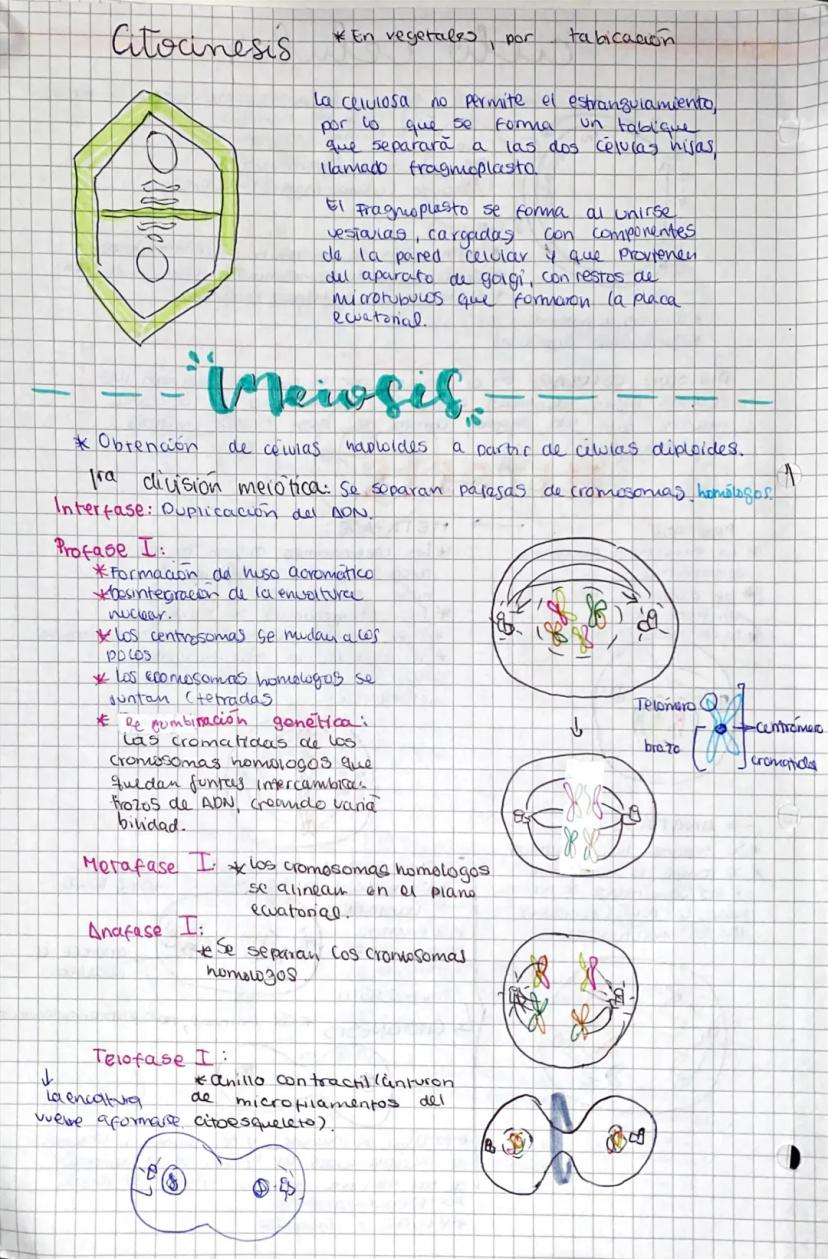 Citocinesis * En vegetales, por tabicación
La celulosa no permite el estrangulamiento,
por lo que se forma un tabique
que separará a las dos células hijas,
llamado fragmoplasto.
El fragmoplasto se forma al unirse
vesículas, cargadas con componentes
de la pared celular y que provienen
del aparato de golgi, con restos de
microtubulos que formaron la placa
ecuatorial.
Meiosis
* Obtención de células haploides a partir de células diploides.
1ra división meiótica: Se separan parejas de cromosomas homólogos.
Interfase: Duplicación del ADN.
Profase I:
* Formación del huso acromático
* Desintegración de la envoltura
nuclear.
* Los centrosomas se mudan a los
polos
* Los cromosomas homologos se
juntan (tetradas
* Recombinación genética:
Las cromatidas de los
cromosomas homologos que
quedan juntas intercambian
trozos de ADN, creando varia
bilidad.
Telómero
centrómero
brazo
cromatida
Metafase I: * Los cromosomas homologos
se alinean en el plano
ecuatorial.
Anafase I:
* Se separan los cromosomas
homologos
Telofase I:
* anillo contractil (cinturon
de microfilamentos del
citoesqueleto).
vuelve a formarse